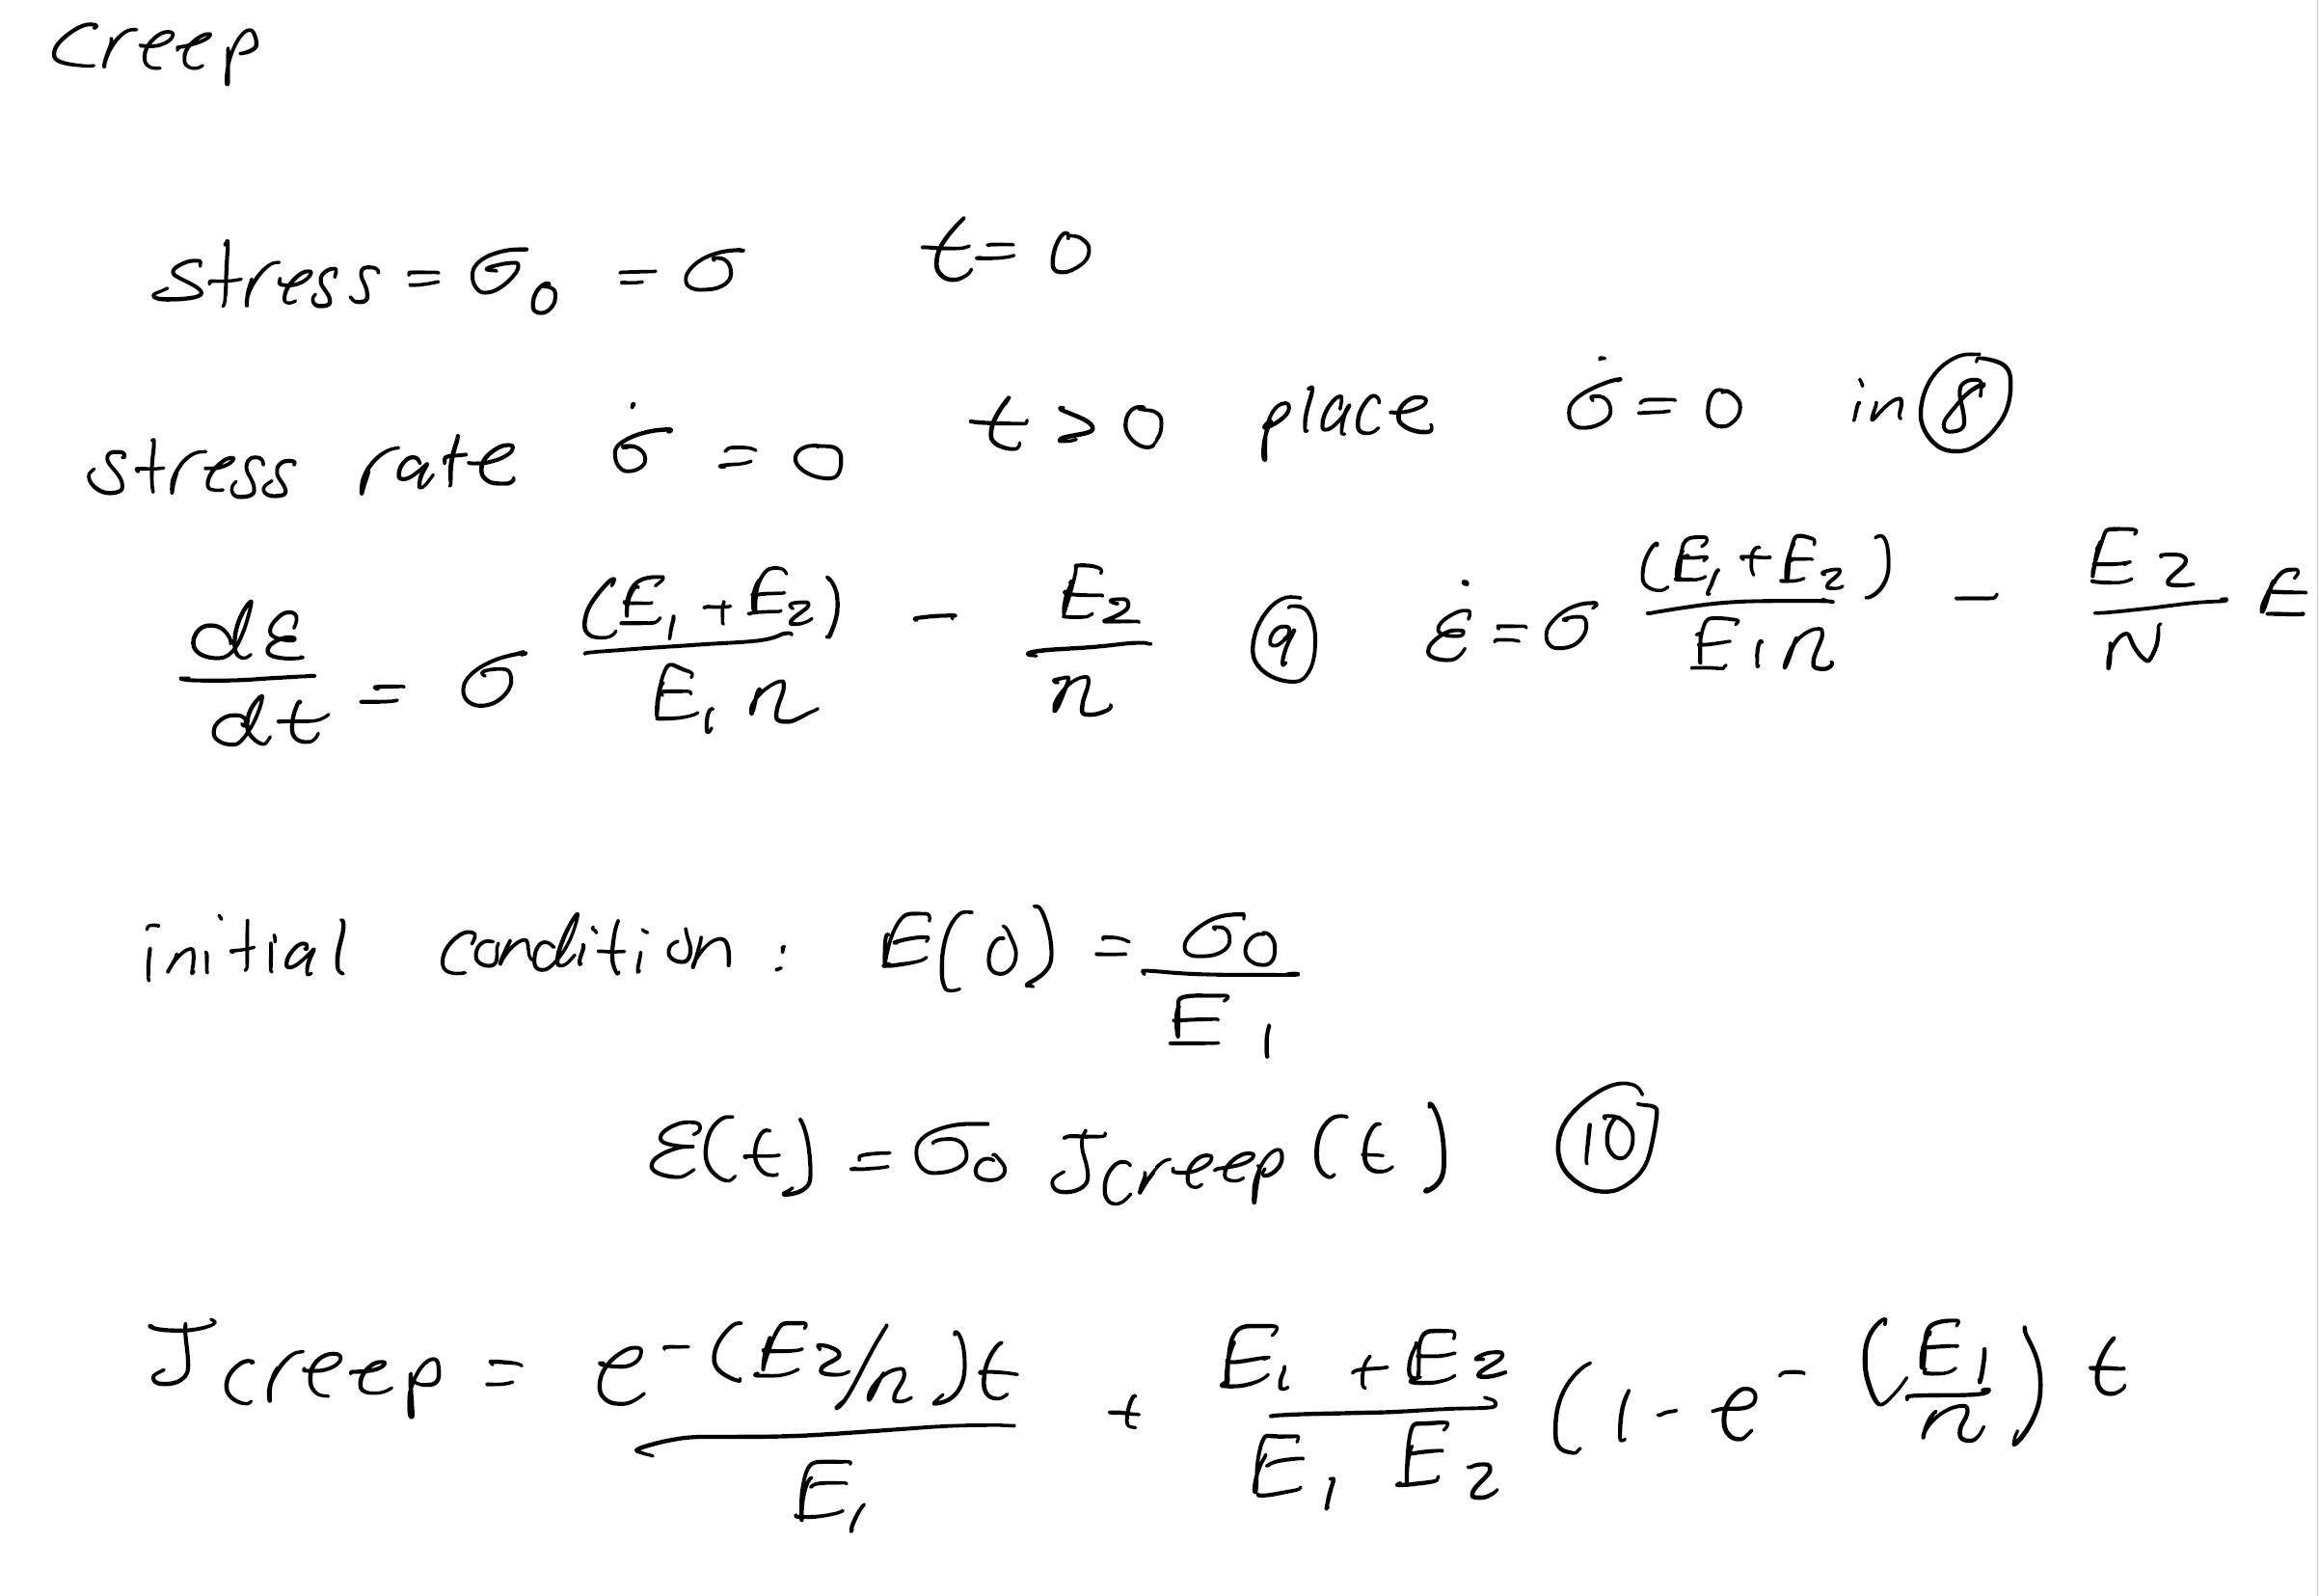 creep
stress = σ₀ = σ t = 0
stress rate σ̇ = 0 t > 0 place σ̇ = 0 in ⑧
dε/dt = σ (E₁ + E₂)/E₁n − E₂/n ⑨ ε̇ = σ (E₁ + E₂)/E₁n − E₂/N E
initial condition : E(0) = σ₀/E₁
ε(t) = σ₀ Jcreep(t) ⑩
Jcreep = e^-(E₂/n)t/E₁ + E₁ + E₂/E₁E₂ (1 - e^-(E₁/n)t